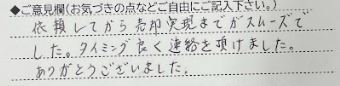 ◆ご意見欄(お気づきの点などご自由にご記入下さい。)
依頼してから売却実現までがスムーズで
した。タイミング良く連絡を頂けました。
ありがとうございました。